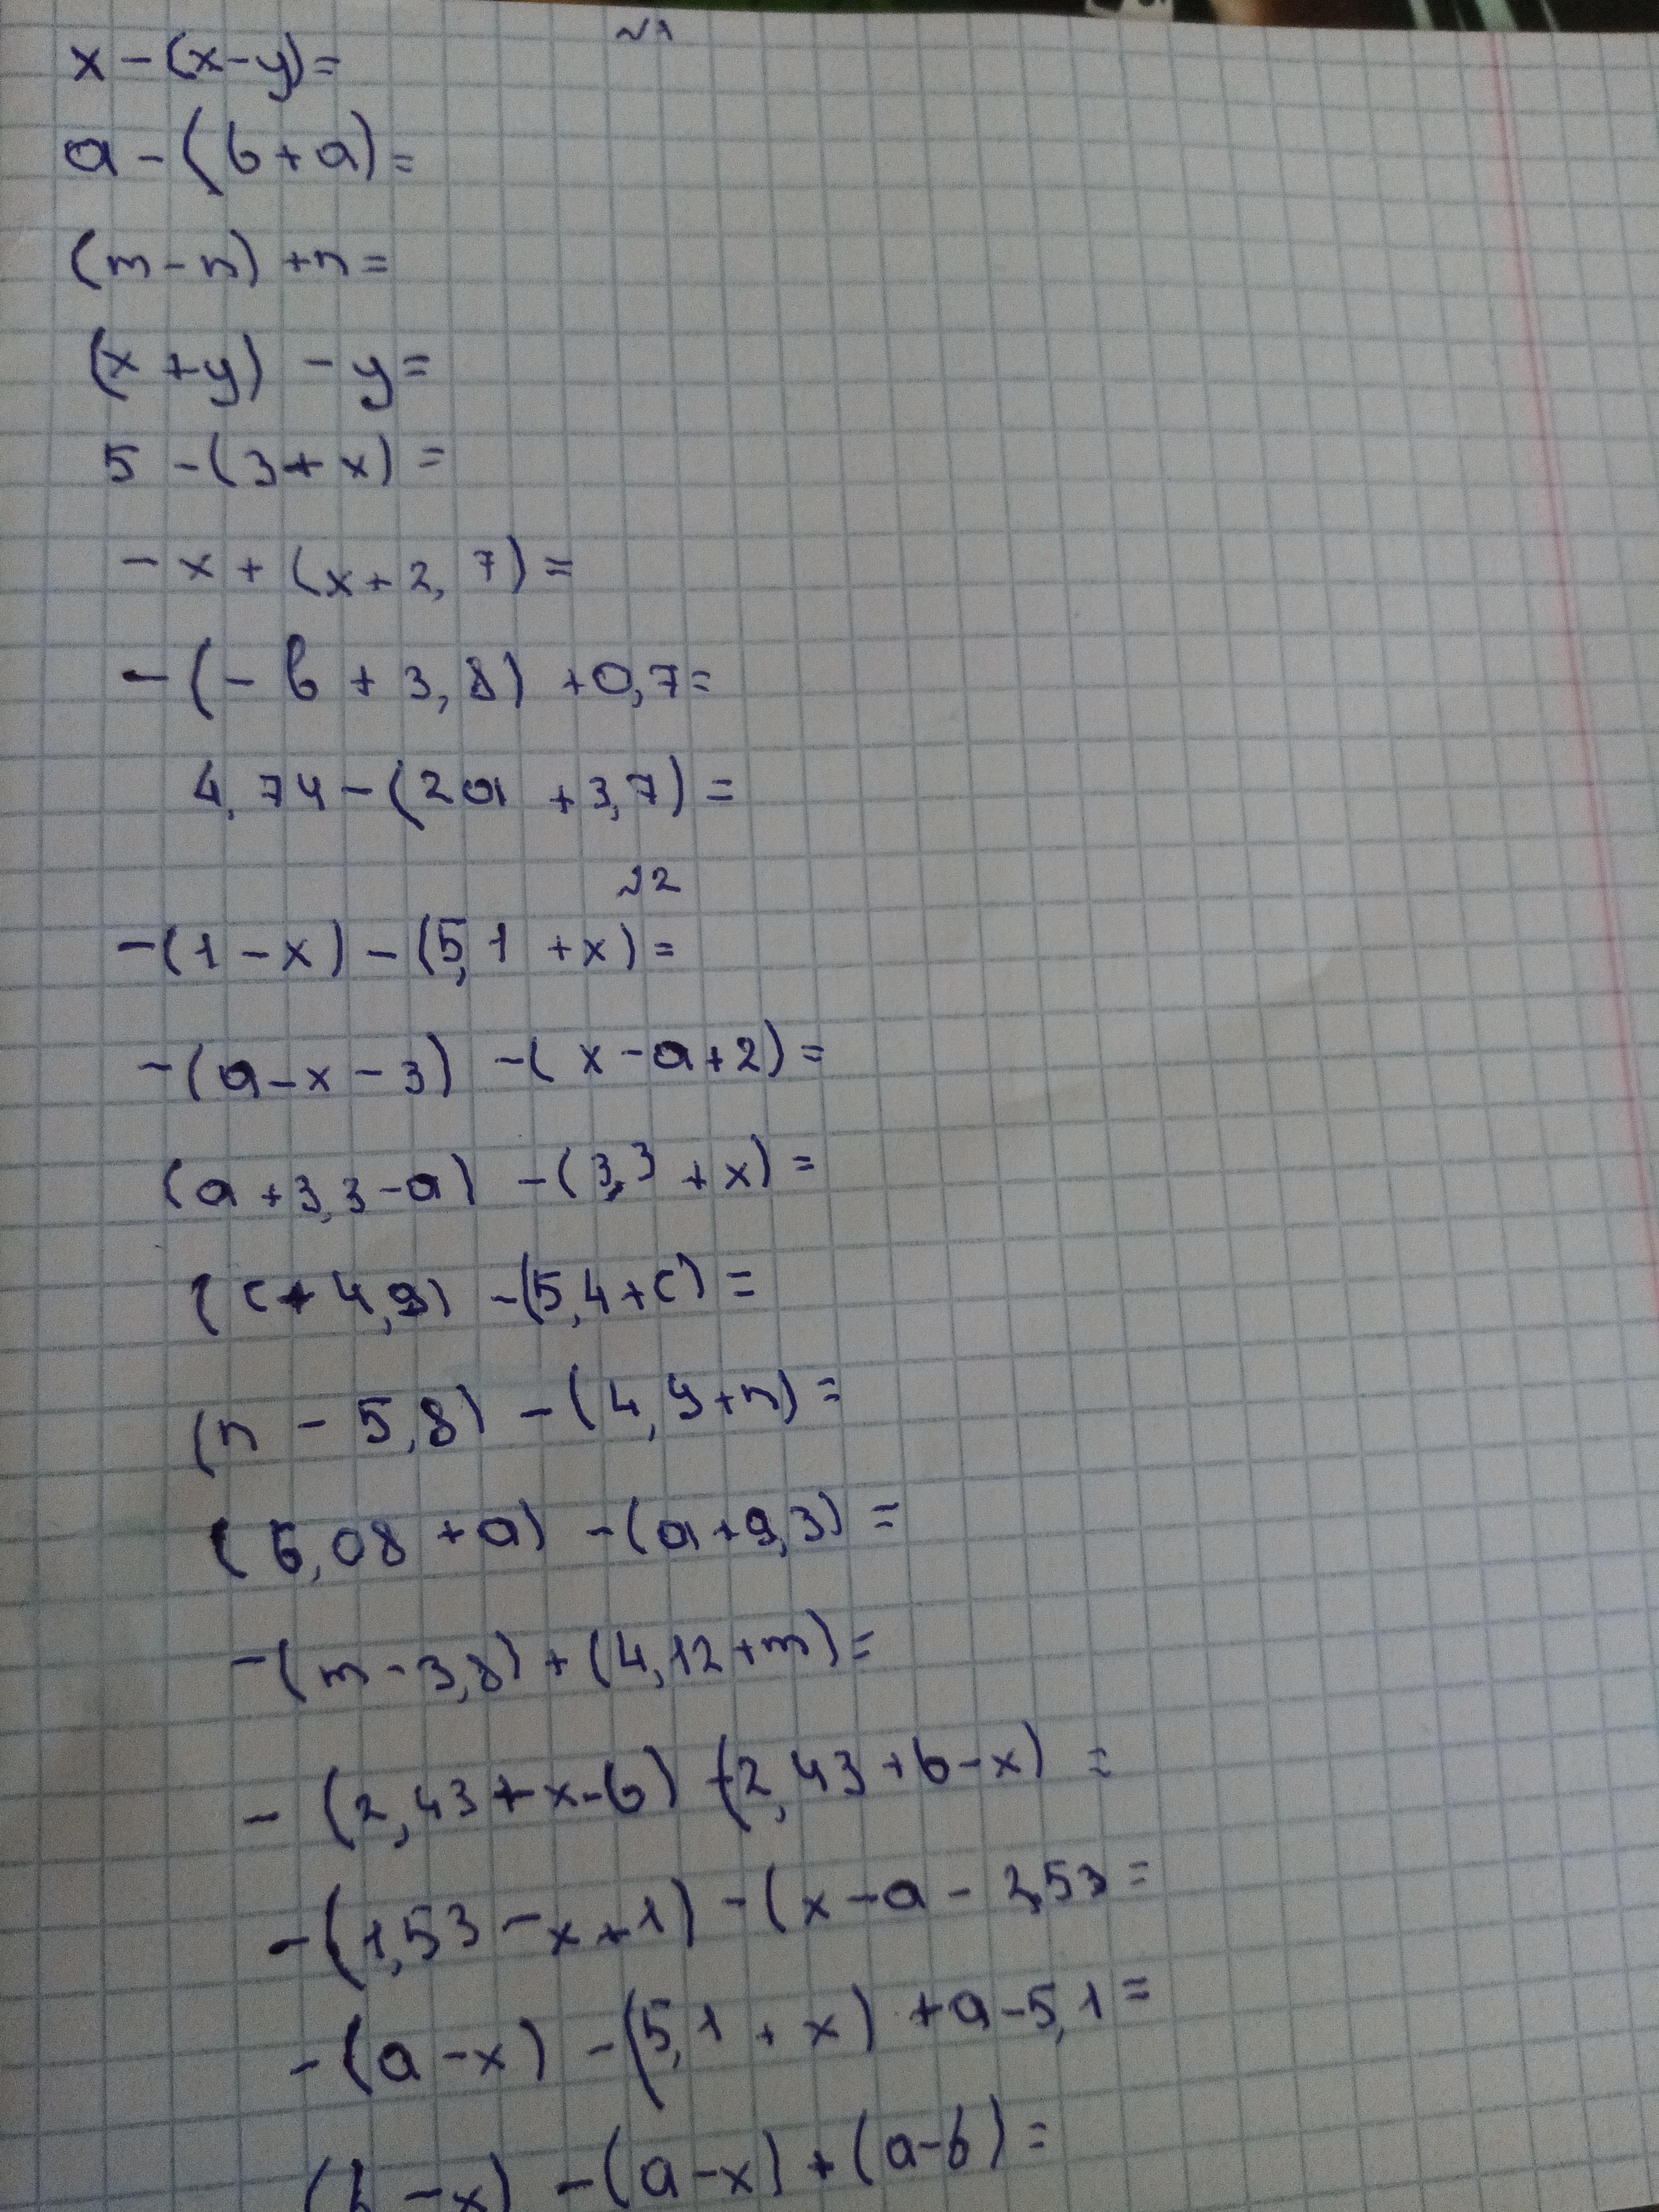 №1
x - (x - y) =
a - (b + a) =
(m - n) + n =
(x + y) - y =
5 - (3 + x) =
- x + (x + 2,7) =
- (- b + 3,8) + 0,7 =
4,74 - (2a + 3,7) =
№2
- (1 - x) - (5,1 + x) =
- (a - x - 3) - (x - a + 2) =
(a + 3,3 - a) - (3,3 + x) =
(c + 4,9) - (5,4 + c) =
(n - 5,8) - (4,9 + n) =
(6,08 + a) - (a + 9,3) =
- (m - 3,8) + (4,12 + m) =
- (2,43 + x - b) + (2,43 + b - x) =
- (1,53 - x + 1) - (x - a - 2,53 =
- (a - x) - (5,1 + x) + a - 5,1 =
(b - x) - (a - x) + (a - b) =